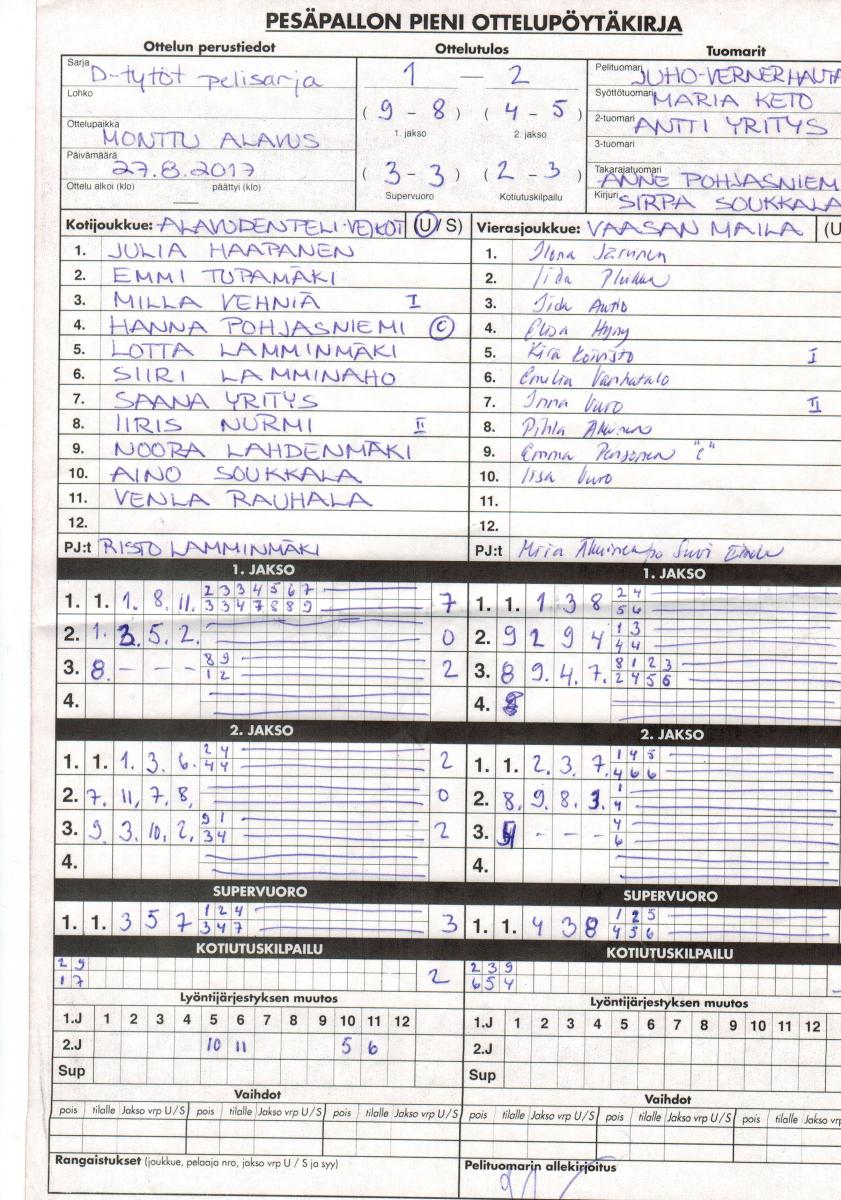 PESÄPALLON PIENI OTTELUPÖYTÄKIRJA
Ottelun perustiedot
Sarja D-tytöt pelisarja
Lohko
Ottelupaikka MONTTU ALAVUS
Päivämäärä 27.8.2017
Ottelu alkoi (klo) päättyi (klo)
Ottelutulos
1 — 2
( 9 - 8 ) ( 4 - 5 )
1. jakso 2. jakso
( 3 - 3 ) ( 2 - 3 )
Supervuoro Kotiutuskilpailu
Tuomarit
Pelituomari JUHO-VERNER HAUTA
Syöttötuomari MARIA KETO
2-tuomari ANTTI YRITYS
3-tuomari
Takarajatuomari ANNE POHJASNIEM
Kirjuri SIRPA SOUKKALA
Kotijoukkue: ALAVUDEN PELI-VEIKOT (U/S)
1. JULIA HAAPANEN
2. EMMI TUPAMÄKI
3. MILLA VEHNIÄ I
4. HANNA POHJASNIEMI C
5. LOTTA LAMMINMÄKI
6. SIIRI LAMMINAHO
7. SAANA YRITYS
8. IIRIS NURMI II
9. NOORA LAHDENMÄKI
10. AINO SOUKKALA
11. VENLA RAUHALA
12.
PJ:t RISTO LAMMINMÄKI
Vierasjoukkue: VAASAN MAILA (U
1. Ilona Järvinen
2. Iida
3. Iida Autio
4. Elisa
5. Kira Koivisto I
6. Emilia Vanhatalo
7. Inna Vuro II
8. Pihla
9. Emma "C"
10. Iisa Vuro
11.
12.
PJ:t Suvi
1. JAKSO
1. 1. 1. 8. 11. 2 3 3 4 5 6 7 7
3 3 4 7 8 8 9
2. 1. 3. 5. 2. 0
3. 8. - - - 8 9 2
1 2
4.
2. JAKSO
1. 1. 1. 3. 6. 2 4 2
4 4
2. 7. 11, 7. 8, 0
3. 9. 3. 10. 2. 9 1 2
3 4
4.
SUPERVUORO
1. 1. 3 5 7 1 2 4 3
3 4 7
KOTIUTUSKILPAILU
2 9 2
1 7
1. JAKSO
1. 1. 1 3 8 2 4
5 6
2. 9 2 9 4 1 3
4 4
3. 8 9. 4. 7. 8 1 2 3
2 4 5 6
4.
2. JAKSO
1. 1. 2. 3. 7. 1 4 5
4 6 6
2. 8. 9. 8. 3. 1
4
3. - - - 4
6
4.
SUPERVUORO
1. 1. 4 3 8 1 2 5
4 5 6
KOTIUTUSKILPAILU
2 3 9
6 5 4
Lyöntijärjestyksen muutos
1.J 1 2 3 4 5 6 7 8 9 10 11 12
2.J 10 11 5 6
Sup
Lyöntijärjestyksen muutos
1.J 1 2 3 4 5 6 7 8 9 10 11 12
2.J
Sup
Vaihdot
pois tilalle Jakso vrp U/S pois tilalle Jakso vrp U/S pois tilalle Jakso vrp U/S
Vaihdot
pois tilalle Jakso vrp U/S pois tilalle Jakso vrp U/S pois tilalle Jakso vrp
Rangaistukset (joukkue, pelaaja nro, jakso vrp U / S ja syy)
Pelituomarin allekirjoitus